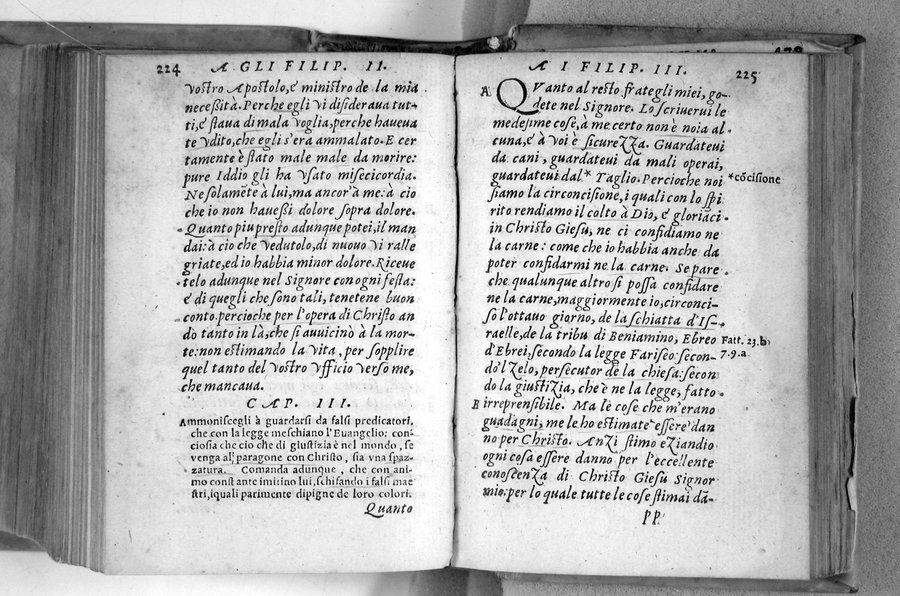 224 A GLI FILIP. II.
vostro Apostolo, e ministro de la mia
necessità. Perche egli vi disiderava tut-
ti, e stava di mala voglia, perche haveva
te vdito, che egli s'era ammalato. E cer
tamente è stato male male da morire:
pure Iddio gli ha vsato misecicordia.
Ne solamẽte à lui, ma ancor'à me: à cio
che io non havessi dolore sopra dolore.
Quanto piu presto adunque potei, il man
dai: à cio che vedutolo, di nuouo vi ralle
griate, ed io habbia minor dolore. Riceve
telo adunque nel Signore con ogni festa:
e di quegli che sono tali, tenetene buon
conto. percioche per l'opera di Christo an
dò tanto in là, che si avvicinò à la mor-
te: non estimando la vita, per sopplire
quel tanto del vostro Vfficio verso me,
che mancava.
CAP. III.
Ammoniscegli à guardarsi da falsi predicatori,
che con la legge meschiano l'Euangelio: con-
ciosia che cio che di giustitia è nel mondo, se
venga al paragone con Christo, sia vna spaz-
zatura. Comanda adunque, che con ani
mo constante imitino lui, schifando i falsi mae
stri, iquali parimente dipigne de loro colori.
Quanto
A I FILIP. III. 225
A QVanto al resto frategli miei, go-
dete nel Signore. Lo scriuerui le
medesime cose, à me certo non è noia al
cuna, e à voi è sicurezza. Guardateui
da cani, guardateui da mali operai,
guardateui dal * Taglio. Percioche noi
*cõcisione
siamo la circoncisione, i quali con lo spi
rito rendiamo il colto à Dio, e gloriãci
in Christo Giesu, ne ci confidiamo ne
la carne: come che io habbia anche da
poter confidarmi ne la carne. Se pare
che qualunque altro si possa confidare
ne la carne, maggiormente io, circonci-
so l'ottavo giorno, de la schiatta d'Is-
raelle, de la tribu di Beniamino, Ebreo
Fatt. 23.b
d'Ebrei, secondo la legge Fariseo: secon-
7.9.a.
do'l zelo, persecutor de la chiesa: secon
do la giustizia, che è ne la legge, fatto
B irreprensibile. Ma le cose che m'erano
guadagni, me le ho estimate essere dan
no per Christo. Anzi stimo eziandio
ogni cosa essere danno per l'eccellente
conoscenza di Christo Giesu Signor
mio. per lo quale tutte le cose stimai dã-
PP